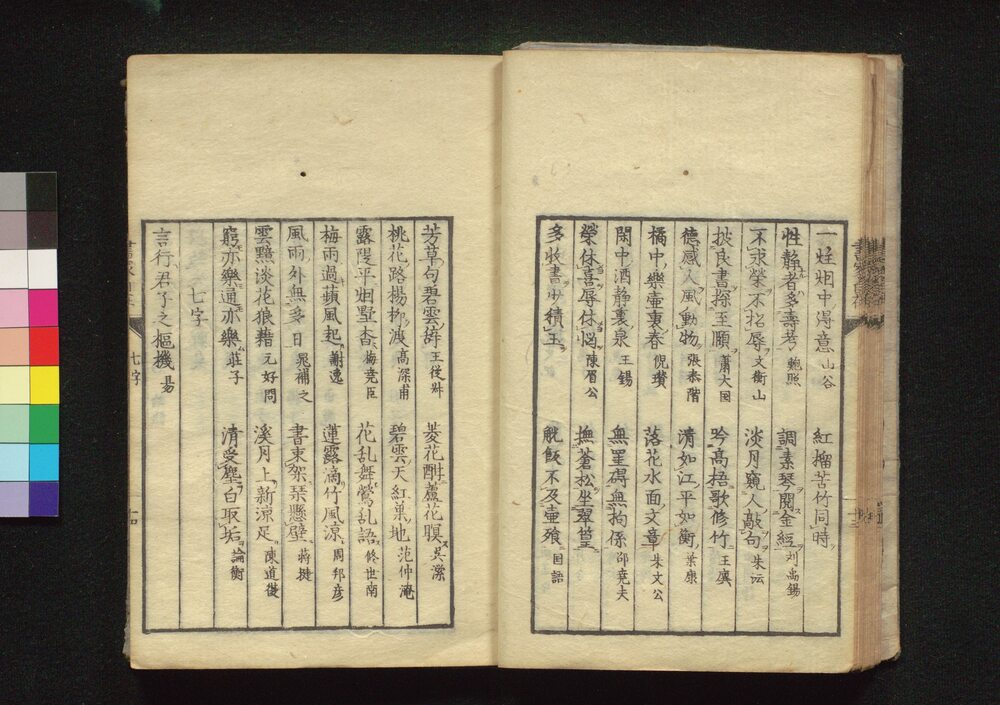 一炷烟中得意 山谷 紅榴苦竹同時
性静者多壽考 鮑照 調素琴閲金經 刘禹錫
不求榮不招辱 文衡山 淡月窺人敲句 朱沄
披良書探至願 蕭大国 吟高梧歌修竹 王廙
德感人風動物 張泰階 清如江平如衡 葉康
橘中樂壷裏春 倪瓚 落花水面文章 朱文公
閑中酒静裏泉 王錫 無罣碍無拘係 邵尭夫
榮休喜辱休悩 陳眉公 撫蒼松坐翠篁
多收書少積玉 觥飯不及壷飱 国語
芳草句碧雲詩 王從叔 菱花酣蘆花暝 吳潔
桃花路楊柳波 高深甫 碧雲天紅巣地 范仲淹
露隄平烟墅杳 梅尭臣 花乱舞鶯乱語 修世南
梅雨過蘋風起 謝逸 蓮露滴竹風涼 周邦彦
風雨外無多日 晁補之 書束架琴懸壁 蒋捷
雲黯淡花狼藉 元好問 溪月上新涼足 陳道復
窮亦樂通亦樂 莊子 清受塵白取垢 論衡
七字
言行君子之樞機 易
七字
十四